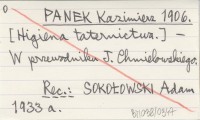 0
PANEK Kazimierz 1906.
[Higiena taternictwa.] —
W przewodniku J. Chmielowskiego.
Rec.: SOKOŁOWSKI Adam
1933 a.